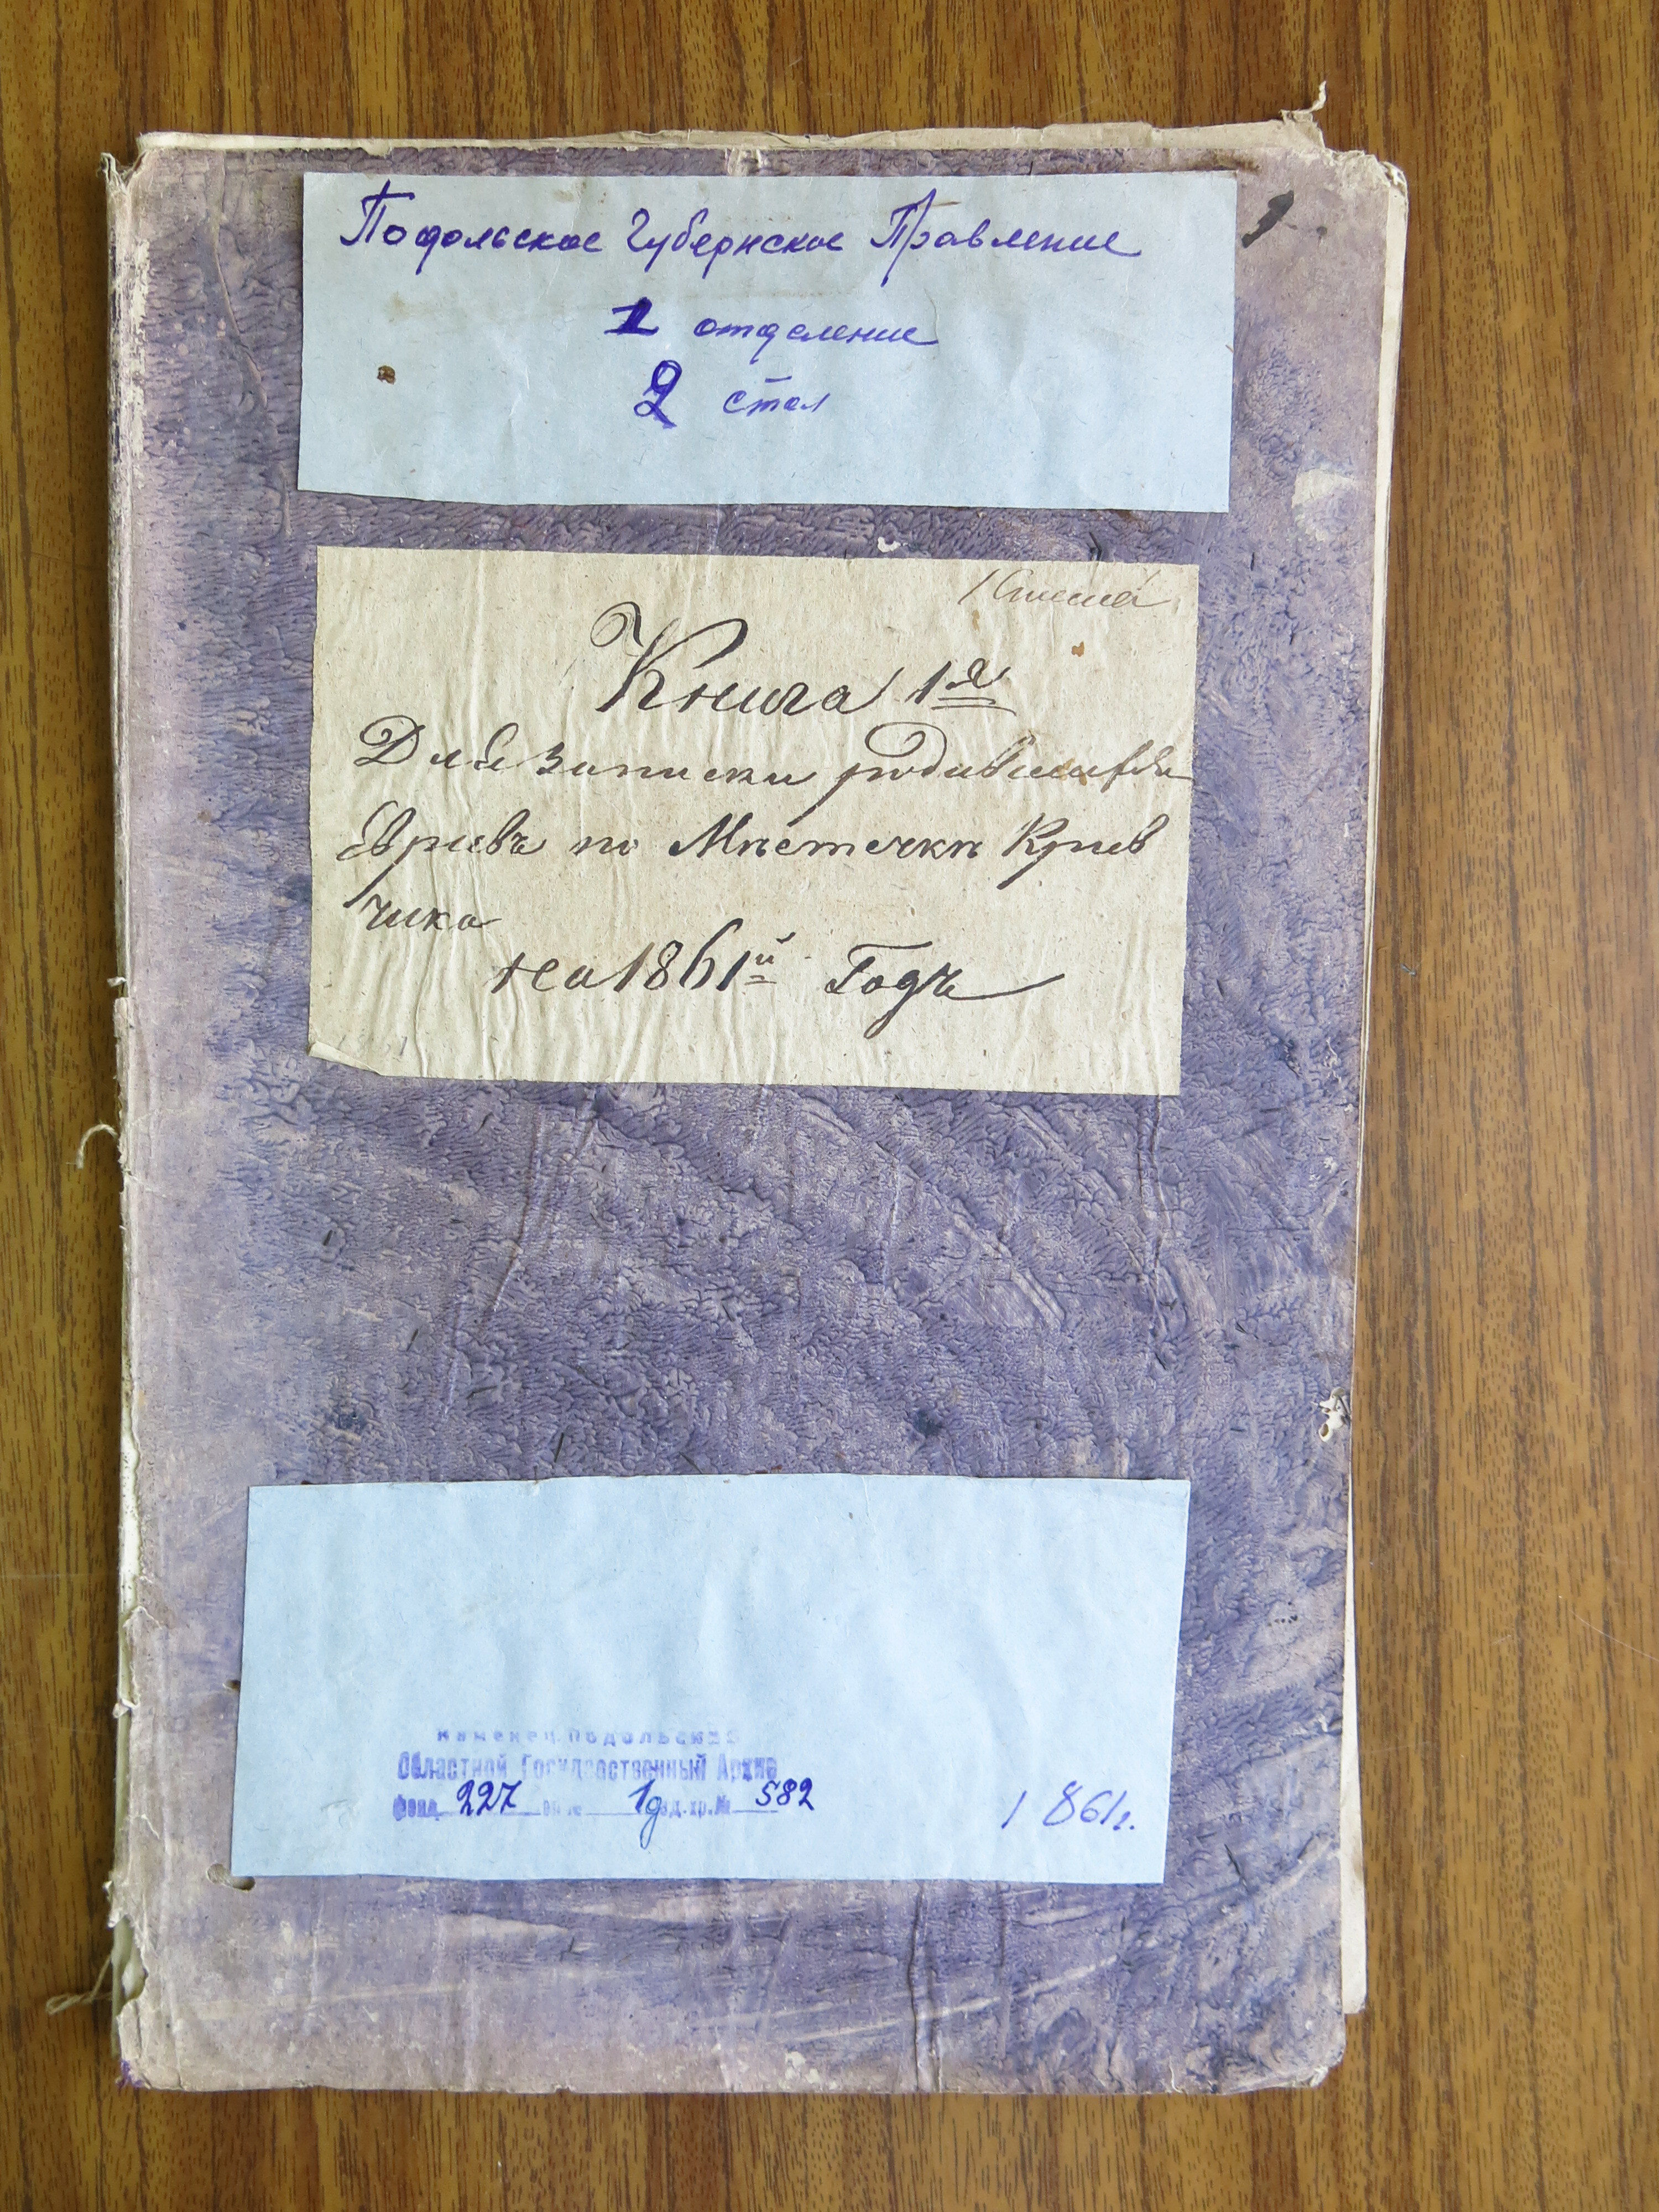 Подольское Губернское Правление
1 отделение
2 стол
Книга 1я
Для записки родившихся
Евреевъ по Мѣстечкѣ Крив
чика
на 1861й Годъ
Каменец Подольский
Областной Государственный Архив
фонд 227 оп № 1д ед. хр. № 582
1861г.